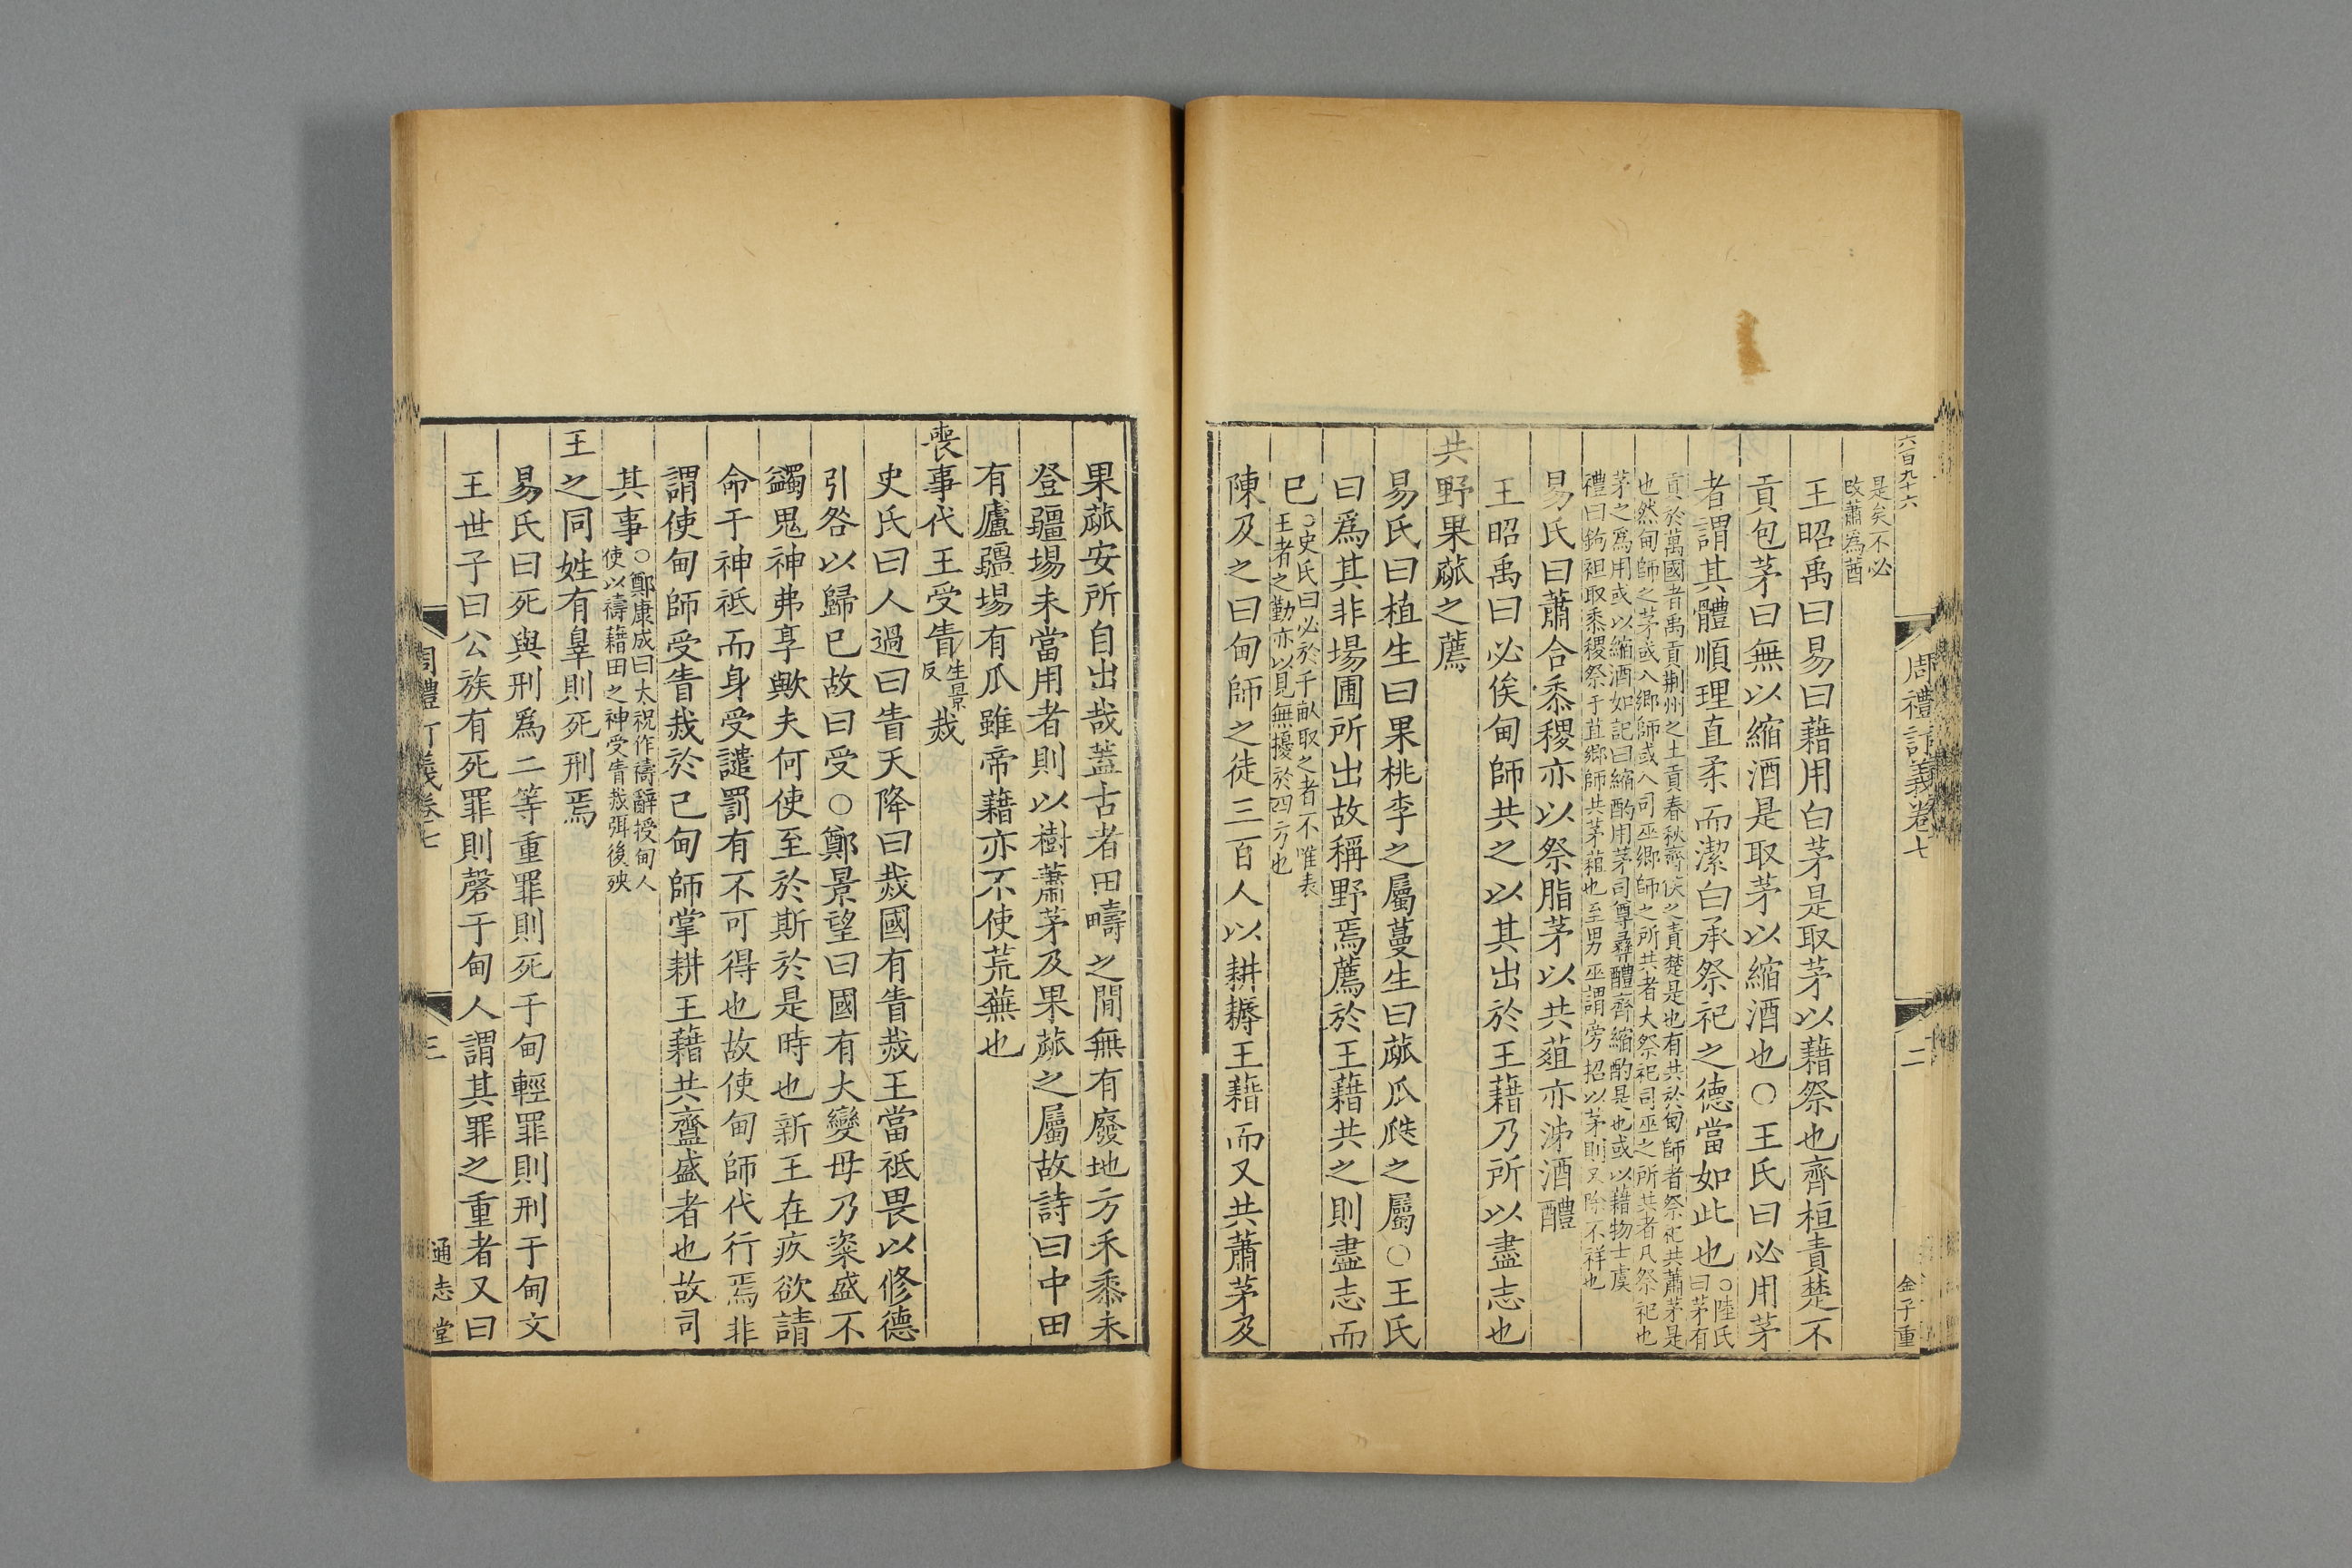 六百九十六
周禮訂義卷七
二
金子重
是矣不必
改蕭為莤
王昭禹曰易曰藉用白茅是取茅以藉祭也齊桓責楚不
貢包茅曰無以縮酒是取茅以縮酒也○王氏曰必用茅
者謂其體順理直柔而潔白承祭祀之德當如此也○陸氏
曰茅有
貢於萬國者禹貢荆州之土貢春秋齊侯之責楚是也有共於甸師者祭祀共蕭茅是
也然甸師之茅或入鄉師或入司巫鄉師之所共者大祭祀司巫之所共者凡祭祀也
茅之為用或以縮酒如記曰縮酌用茅司尊彝醴齊縮酌是也或以藉物士虞
禮曰鉤袒取黍稷祭于苴鄉師共茅蒩也至男巫謂旁招以茅則又除不祥也
易氏曰蕭合黍稷亦以祭脂茅以共蒩亦泲酒醴
王昭禹曰必俟甸師共之以其出於王藉乃所以盡志也
共野果蓏之薦
易氏曰植生曰果桃李之屬蔓生曰蓏瓜瓞之屬○王氏
曰爲其非場圃所出故稱野焉薦於王藉共之則盡志而
已○史氏曰必於千畝取之者不唯表
王者之勤亦以見無擾於四方也
陳及之曰甸師之徒三百人以耕耨王藉而又共蕭茅及
果蓏安所自出哉蓋古者田疇之間無有廢地方禾黍未
登疆埸未當用者則以樹蕭茅及果蓏之屬故詩曰中田
有廬疆埸有瓜雖帝藉亦不使荒蕪也
喪事代王受眚生景
反烖
史氏曰人過曰眚天降曰烖國有眚烖王當祗畏以修德
引咎以歸已故曰受○鄭景望曰國有大變毋乃粢盛不
蠲鬼神弗享歟夫何使至於斯於是時也新王在疚欲請
命于神祗而身受譴罰有不可得也故使甸師代行焉非
謂使甸師受眚烖於己甸師掌耕王藉共齍盛者也故司
其事○鄭康成曰大祝作禱辭授甸人
使以禱藉田之神受眚烖弭後殃
王之同姓有辠則死刑焉
易氏曰死與刑爲二等重罪則死于甸輕罪則刑于甸文
王世子曰公族有死罪則磬于甸人謂其罪之重者又曰
周禮訂義卷七
三
通志堂